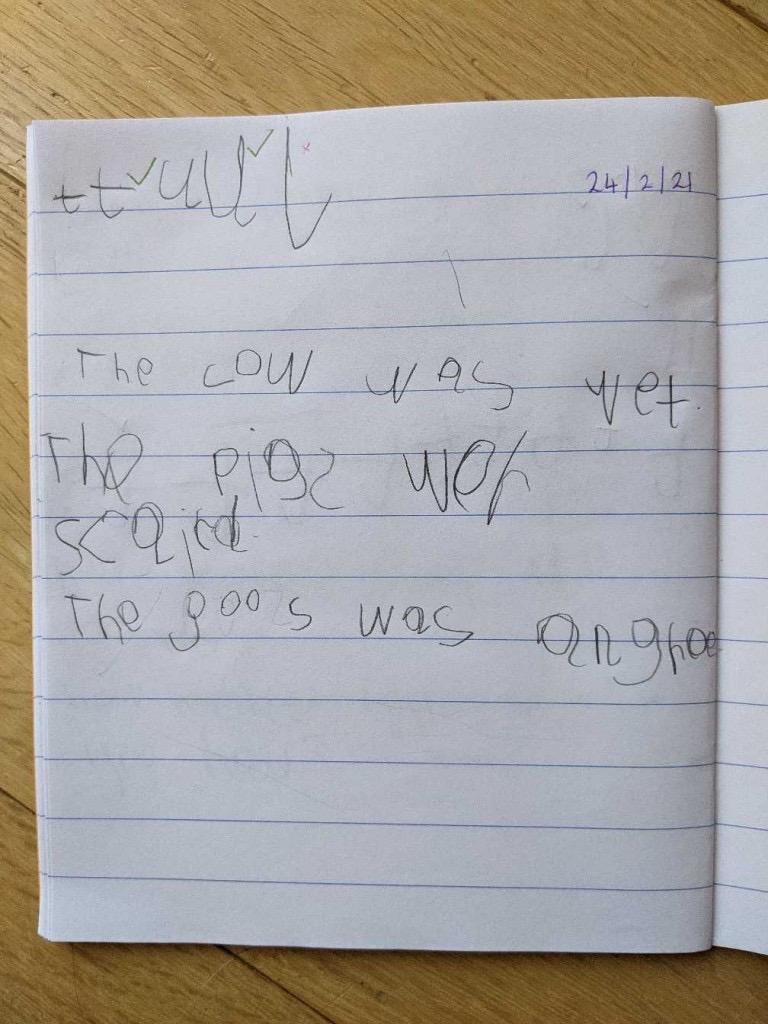 t t u u l 24/2/21
The cow was wet.
The pigs wer
scaird.
The goos was angree